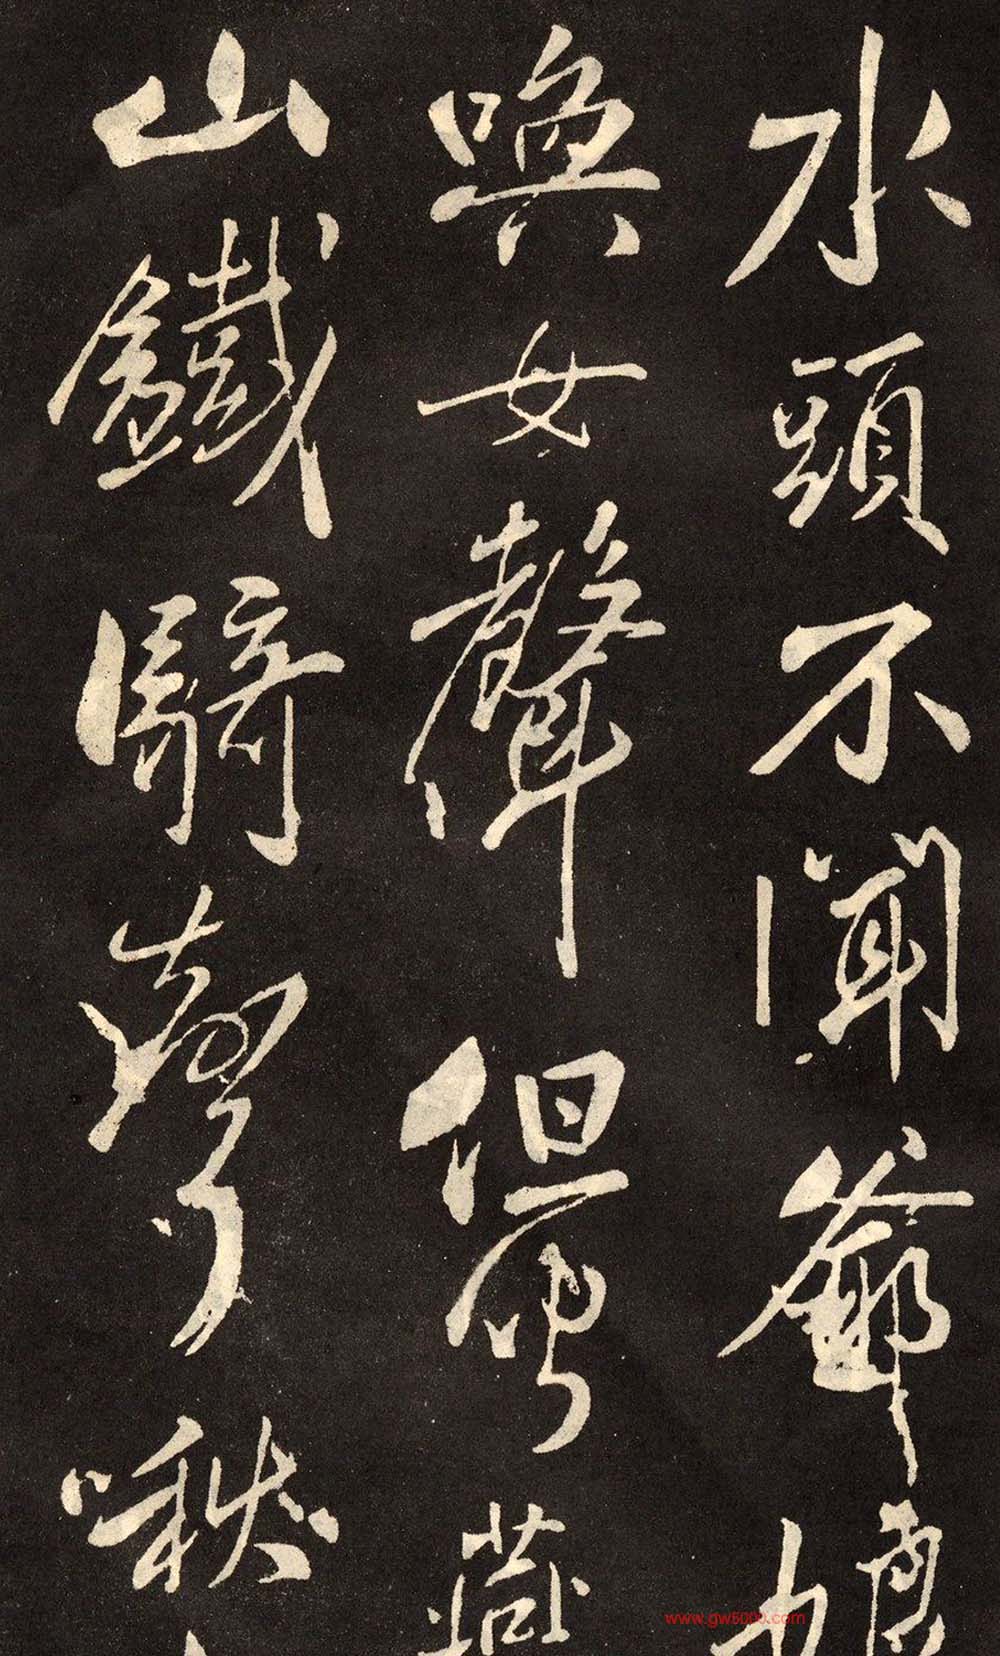 水頭不聞爺孃
喚女聲但聞燕
山鐵騎聲啾
www.gw5000.com